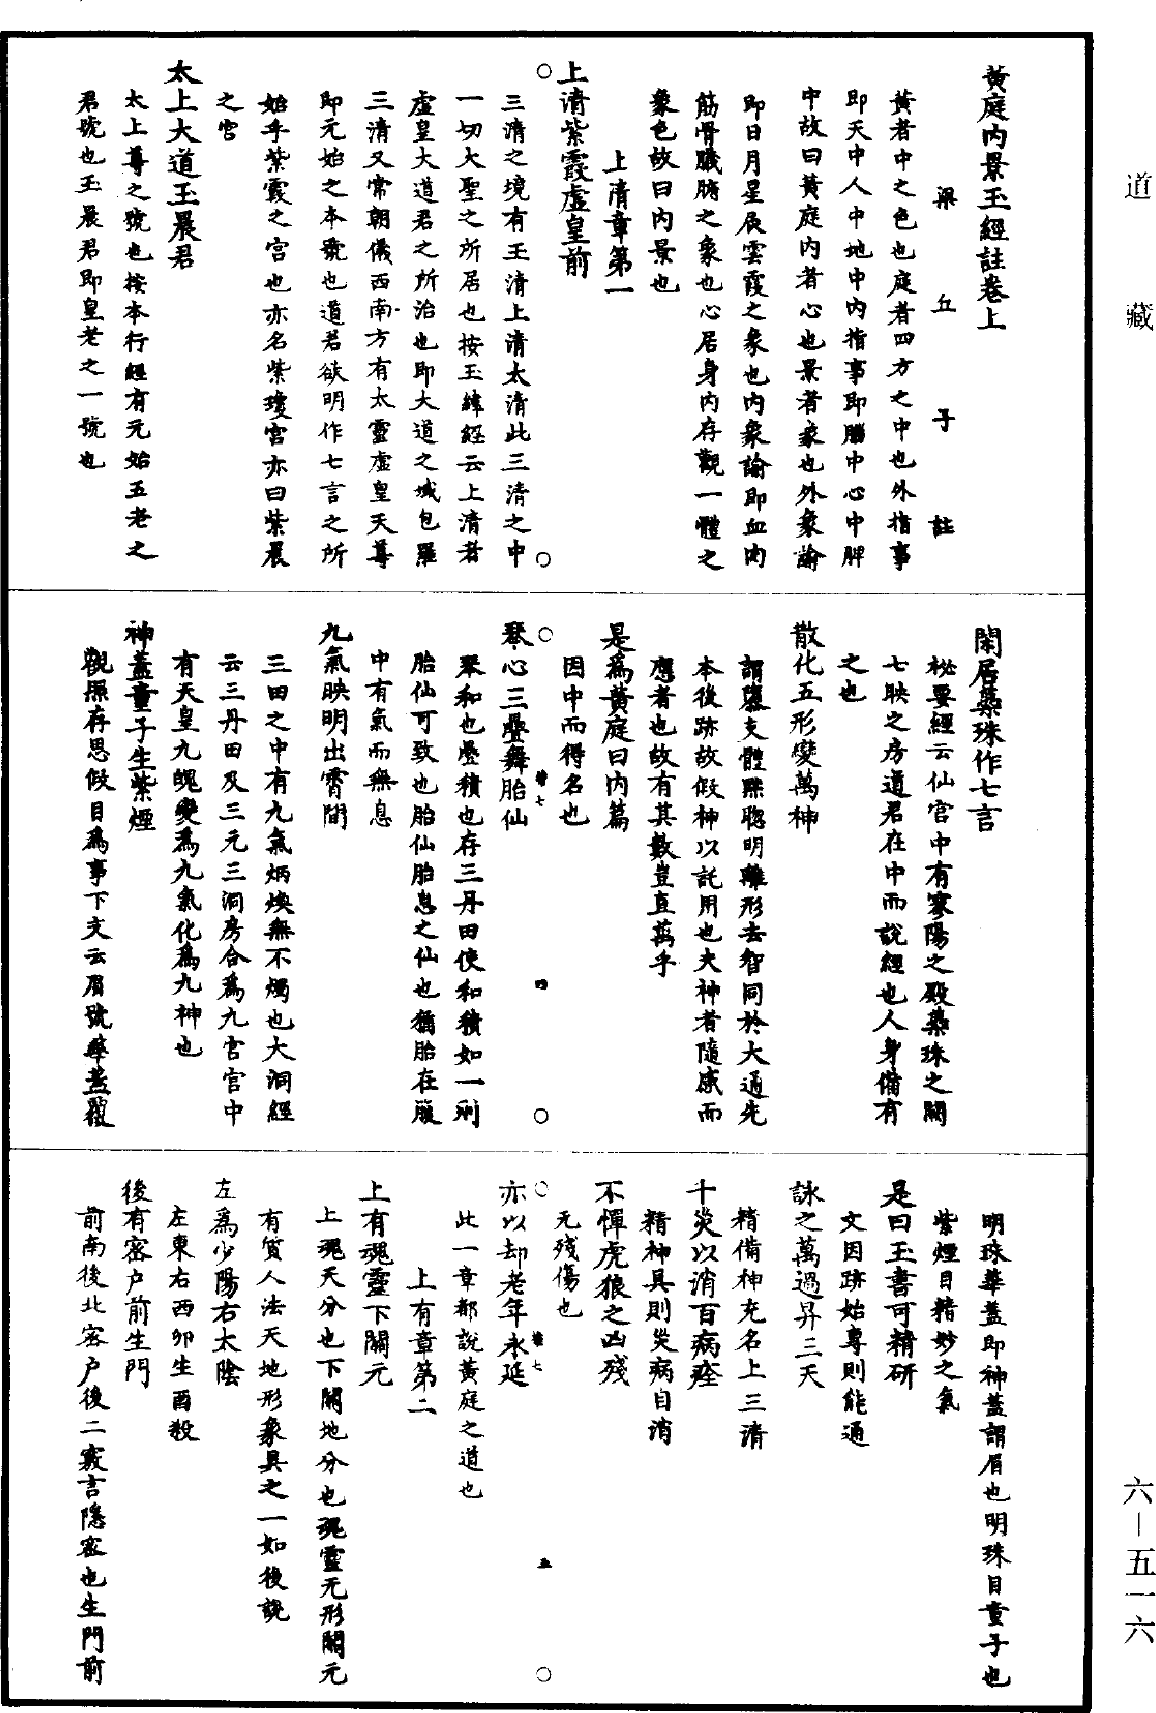 道藏
黃庭內景玉經註卷上
梁丘子註
黃者中之色也庭者四方之中也外指事
即天中人中地中內指事即腦中心中脾
中故曰黃庭內者心也景者象也外象諭
即日月星辰雲霞之象也內象諭即血肉
筋骨臟腑之象也心居身內存觀一體之
象色故曰內景也
上清章第一
上清紫霞虛皇前
三清之境有玉清上清太清此三清之中
一切大聖之所居也按玉緯經云上清者
虛皇大道君之所治也即大道之域包羅
三清又常朝儀西南方有太靈虛皇天尊
即元始之本號也道君欲明作七言之所
始乎紫霞之宮也亦名紫瓊宮亦曰紫晨
之宮
太上大道玉晨君
太上尊之號也按本行經有元始五老之
君號也玉晨君即皇老之一號也
閑居蘂珠作七言
祕要經云仙宮中有寥陽之殿蘂珠之闕
七映之房道君在中而說經也人身備有
之也
散化五形變萬神
謂隳支體黜聰明離形去智同於大通先
本後跡故假神以託用也夫神者隨感而
應者也故有其數豈直萬乎
是為黃庭曰內篇
因中而得名也
琴心三疊舞胎仙
琴和也疊積也存三丹田使和積如一則
胎仙可致也胎仙胎息之仙也猶胎在腹
中有氣而無息
九氣映明出霄間
三田之中有九氣炳煥無不燭也大洞經
云三丹田及三元三洞房合為九宮宮中
有天皇九魄變為九氣化為九神也
神蓋童子生紫煙
觀照存思假目為事下文云眉號華蓋覆
明珠華蓋即神蓋謂眉也明珠目童子也
紫煙目精妙之氣
是曰玉書可精研
文因跡始專則能通
詠之萬過昇三天
精備神充名上三清
千災以消百病痊
精神具則災病自消
不憚虎狼之凶殘
无殘傷也
亦以却老年永延
此一章都說黃庭之道也
上有章第二
上有魂靈下關元
上魂天分也下關地分也魂靈无形關元
有質人法天地形象具之一如後說
左為少陽右太陰
左東右西卯生酉殺
後有密户前生門
前南後北密户後二竅言隱密也生門前
六—五一六